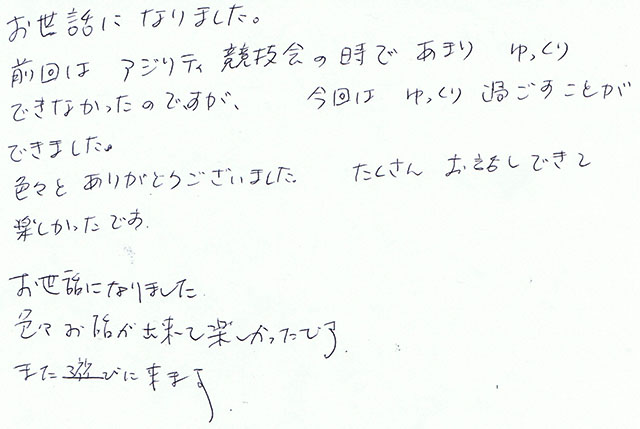 お世話になりました。
前回は アジリティ競技会の時で あまり ゆっくり
できなかったのですが、 今回は ゆっくり 過ごすことが
できました。
色々と ありがとうございました たくさん お話しできて
楽しかったです.
お世話になりました
色々お話が出来て楽しかったです.
また遊びに来ます.